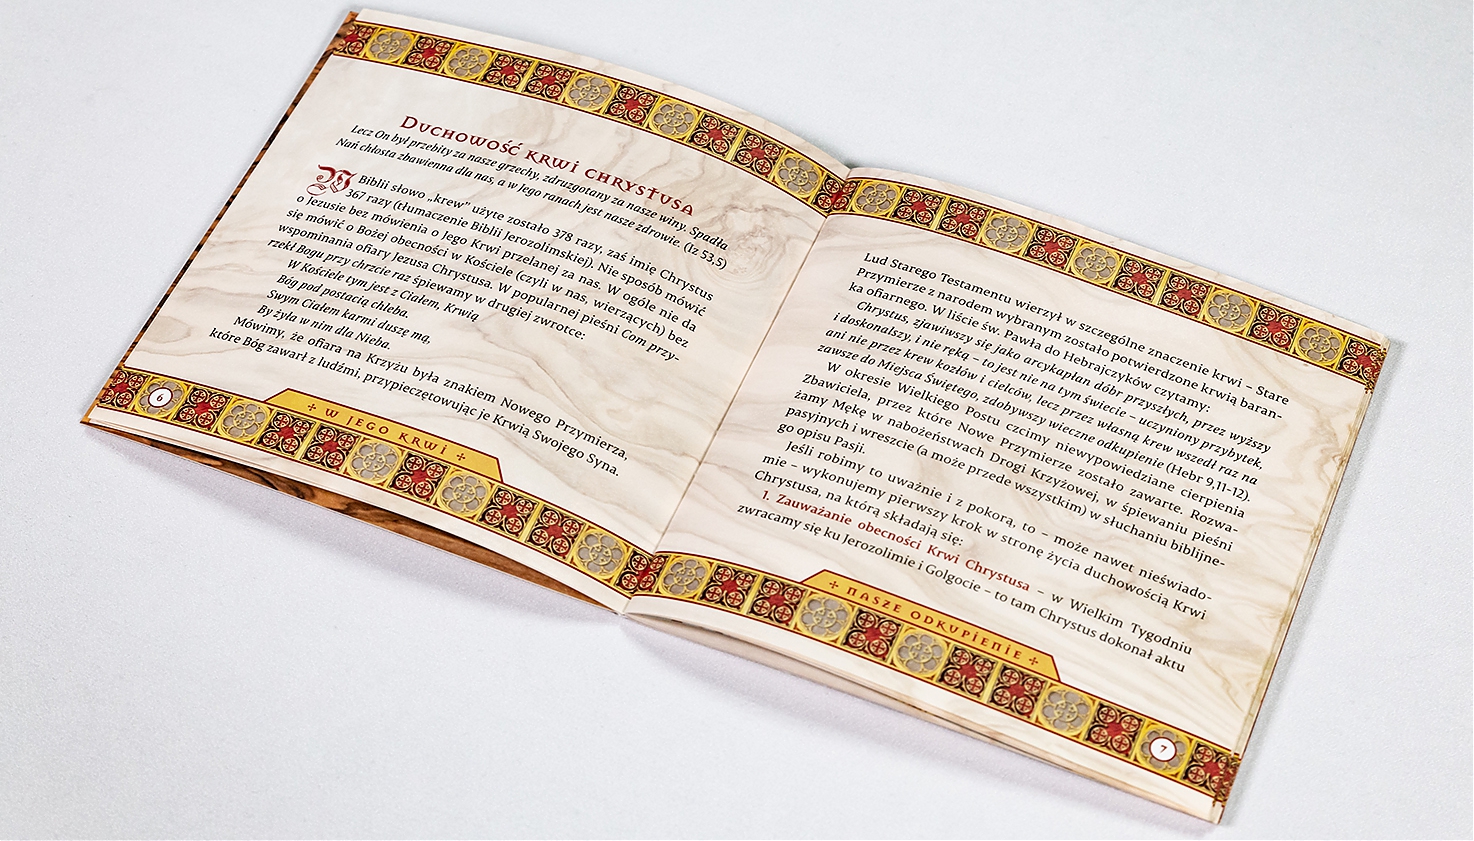 Duchowość krwi Chrystusa
Lecz On był przebity za nasze grzechy, zdruzgotany za nasze winy. Spadła
Nań chłosta zbawienna dla nas, a w Jego ranach jest nasze zdrowie. (Iz 53,5)
W Biblii słowo „krew” użyte zostało 378 razy, zaś imię Chrystus
367 razy (tłumaczenie Biblii Jerozolimskiej). Nie sposób mówić
o Jezusie bez mówienia o Jego Krwi przelanej za nas. W ogóle nie da
się mówić o Bożej obecności w Kościele (czyli w nas, wierzących) bez
wspominania ofiary Jezusa Chrystusa. W popularnej pieśni Com przy-
rzekł Bogu przy chrzcie raz śpiewamy w drugiej zwrotce:
W Kościele tym jest z Ciałem, Krwią
Bóg pod postacią chleba.
Swym Ciałem karmi duszę mą,
By żyła w nim dla Nieba.
Mówimy, że ofiara na Krzyżu była znakiem Nowego Przymierza,
które Bóg zawarł z ludźmi, przypieczętowując je Krwią Swojego Syna.
6
+ W JEGO KRWI +
Lud Starego Testamentu wierzył w szczególne znaczenie krwi – Stare
Przymierze z narodem wybranym zostało potwierdzone krwią baran-
ka ofiarnego. W liście św. Pawła do Hebrajczyków czytamy:
Chrystus, zjawiwszy się jako arcykapłan dóbr przyszłych, przez wyższy
i doskonalszy, i nie ręką – to jest nie na tym świecie – uczyniony przybytek,
ani nie przez krew kozłów i cielców, lecz przez własną krew wszedł raz na
zawsze do Miejsca Świętego, zdobywszy wieczne odkupienie (Hebr 9,11-12).
W okresie Wielkiego Postu czcimy niewypowiedziane cierpienia
Zbawiciela, przez które Nowe Przymierze zostało zawarte. Rozwa-
żamy Mękę w nabożeństwach Drogi Krzyżowej, w śpiewaniu pieśni
pasyjnych i wreszcie (a może przede wszystkim) w słuchaniu biblijne-
go opisu Pasji.
Jeśli robimy to uważnie i z pokorą, to – może nawet nieświado-
mie – wykonujemy pierwszy krok w stronę życia duchowością Krwi
Chrystusa, na którą składają się:
1. Zauważanie obecności Krwi Chrystusa – w Wielkim Tygodniu
zwracamy się ku Jerozolimie i Golgocie – to tam Chrystus dokonał aktu
+ NASZE ODKUPIENIE +
7